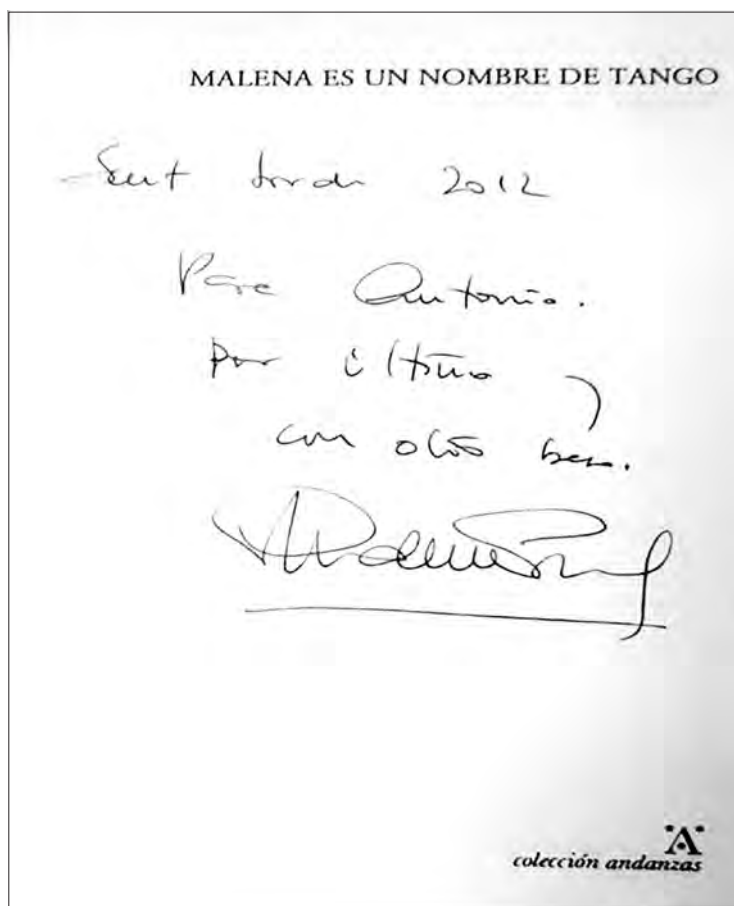 MALENA ES UN NOMBRE DE TANGO
Sant Jordi 2012
Para Antonio.
Por último y
con otro beso.
Almudena Grandes
A
colección andanzas